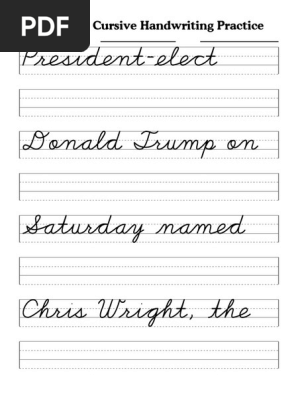 PDF
Cursive Handwriting Practice
President-elect
Donald Trump on
Saturday named
Chris Wright, the